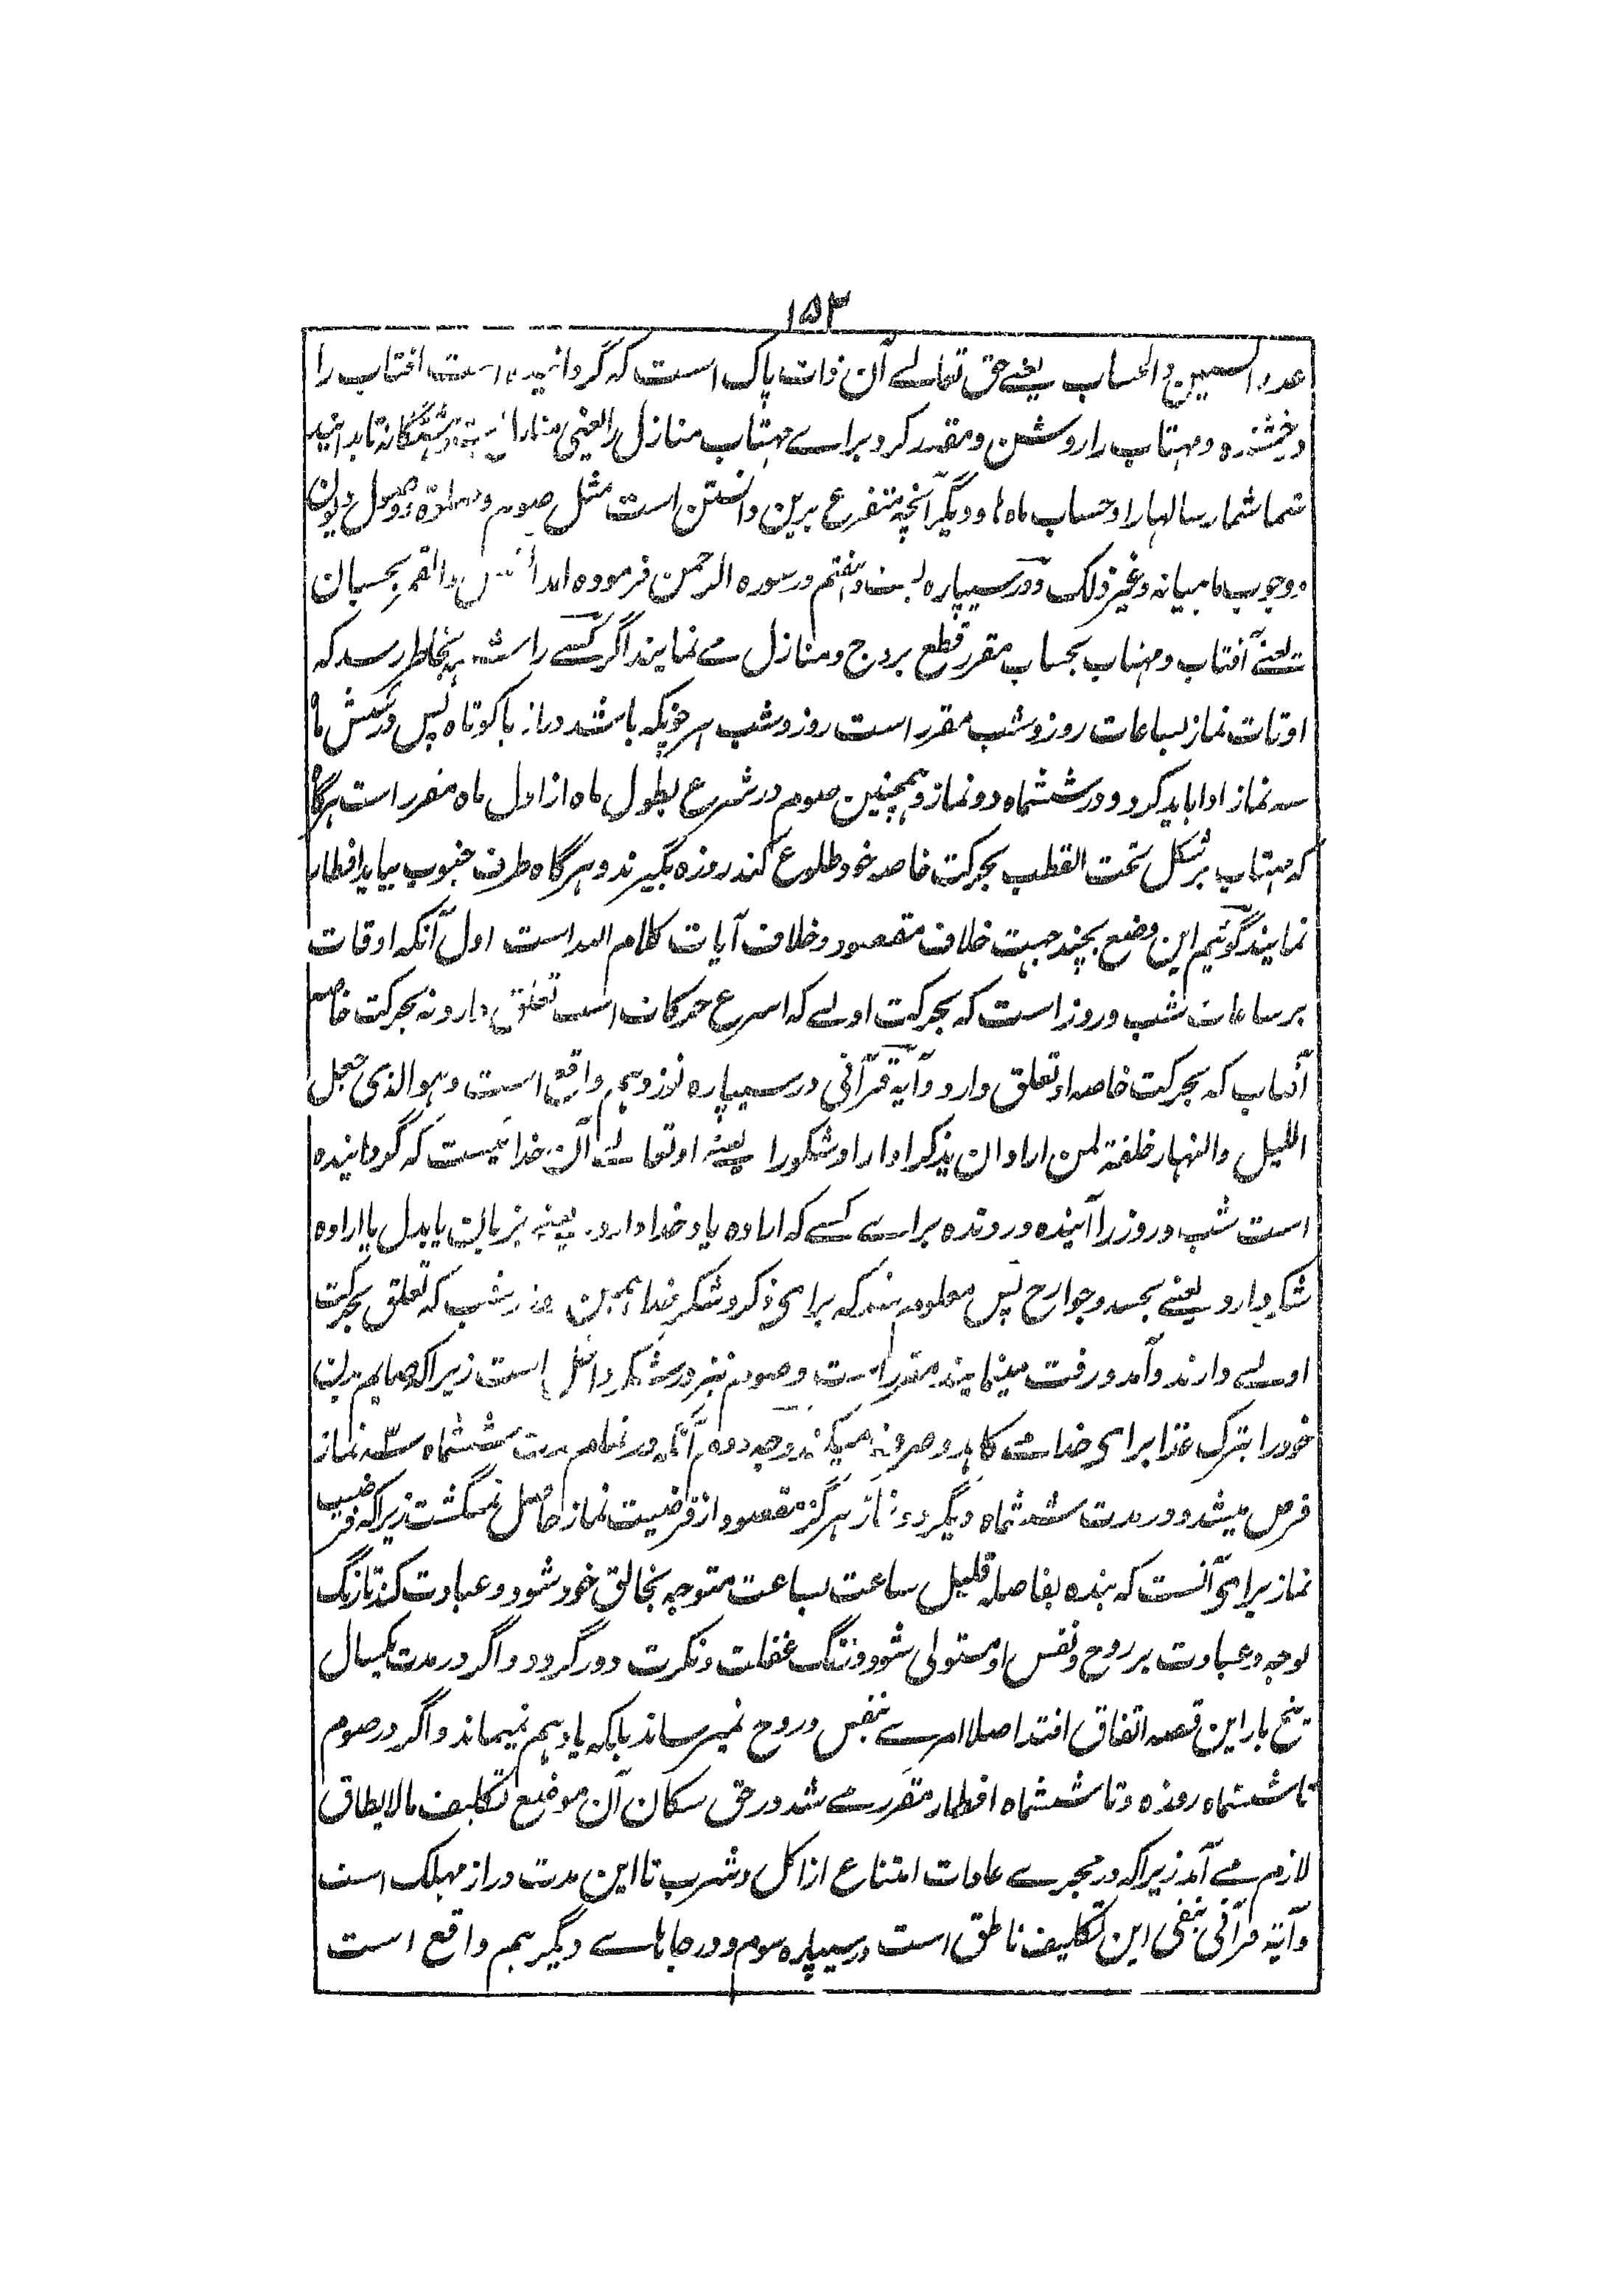 ۱۵۳
عدد السنین والحساب یعنے حق تعالے آن ذات پاک است کہ گردانیدہ است افتاب را
درخشندہ ومہتاب را روشن ومقدر کرد براے مہتاب منازل را یعنی منازل بست وہشتگانہ تا بدانید
شما شمار سالہا را وحساب ماہ ہا ودیگر آنچہ متفرع برین دانستن است مثل صوم وصلوۃ وحصول دیون
ووجوب ماہیانہ وغیر ذلک ودر سیپارہ بست وہفتم در سورہ الرحمن فرمودہ اند الشمس والقمر بحسبان
یعنے آفتاب ومہتاب بحساب مقرر قطع بروج ومنازل مے نمایند اگر کسے را شبہ بخاطر رسد کہ
اوقات نماز بساعات روز وشب مقرر است روز وشب ہر چونکہ باشد دراز یا کوتاہ پس در شش ماہ
سہ نماز ادا باید کرد ودر ششماہ دو نماز وہمچنین صوم در شرع بطول ماہ از اول ماہ مقرر است ہرگاہ
کہ مہتاب بر شکل تحت القطب بحرکت خاصہ خود طلوع کند روزہ بگیرند وہرگاہ طرف جنوب بیاید افطار
نمایند گوئیم این وضع بچند جہت خلاف مقصود وخلاف آیات کلام اللہ است اول آنکہ اوقات
بر ساعات شب وروز است کہ بحرکت اولے کہ اسرع حرکات است تعلق دارد نہ بحرکت خاصہ
آفتاب کہ بحرکت خاصہ او تعلق دارد وآیۃ قرآنی در سیپارہ نوزدہم واقع است وہو الذی جعل
اللیل والنہار خلفۃ لمن اراد ان یذکر او اراد شکورا یعنے او تعالے آن خدائیست کہ گردانیدہ
است شب وروز را آیندہ وروندہ براے کسے کہ ارادہ یاد خدا دارد یعنے بزبان یا بدل یا ارادہ
شکر دارد یعنے بجسد وجوارح پس معلوم شد کہ برای ذکر وشکر خدا ہمین روز وشب کہ تعلق بحرکت
اولے دارند وآمد ورفت مینمایند مقرر است وصوم نیز در شکر داخل است زیرا کہ صایم بدن
خود را بترک غذا برای خدا مے کاہد وصرف میکند وجہ دوم آنکہ در تمام مدت ششماہ سہ نماز
فرض میشد ودر مدت ششماہ دیگر دو نماز ہرگز مقصود از فرضیت نماز حاصل نمیگشت زیرا کہ فرضیت
نماز برای آنست کہ بندہ بفاصلہ قلیل ساعت بساعت متوجہ بخالق خود شود وعبادت کند تا رنگ
توجہ وعبادت بر روح ونفس او مستولی شود وزنگ غفلت ونکرت دور گردد واگر در مدت یکسال
پنج بار این قصہ اتفاق افتد اصلا امرے بنفس وروح نمیرساند بلکہ یاد ہم نمیماند واگر در صوم
تا ششماہ روزہ وتا ششماہ افطار مقرر مے شد در حق سکان آن موضع تکلیف مالایطاق
لازم مے آمد زیرا کہ در مجرے عادات امتناع از اکل وشرب تا این مدت دراز مہلک است
وآیۃ قرآنی بنفی این تکلیف ناطق است در سیپارہ سوم ودر جاہاے دیگر ہم واقع است